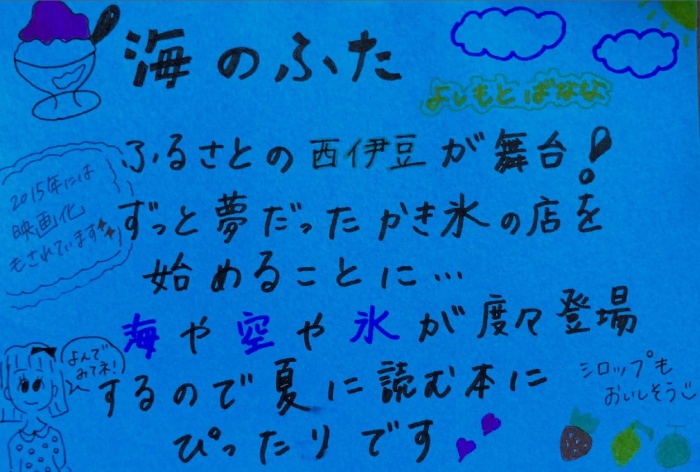 海のふた
よしもとばなな
ふるさとの西伊豆が舞台!
2015年には
映画化
もされています
ずっと夢だったかき氷の店を
始めることに…
海や空や氷が度々登場
よんで
みてネ!
するので夏に読む本に
シロップも
おいしそう
ぴったりです